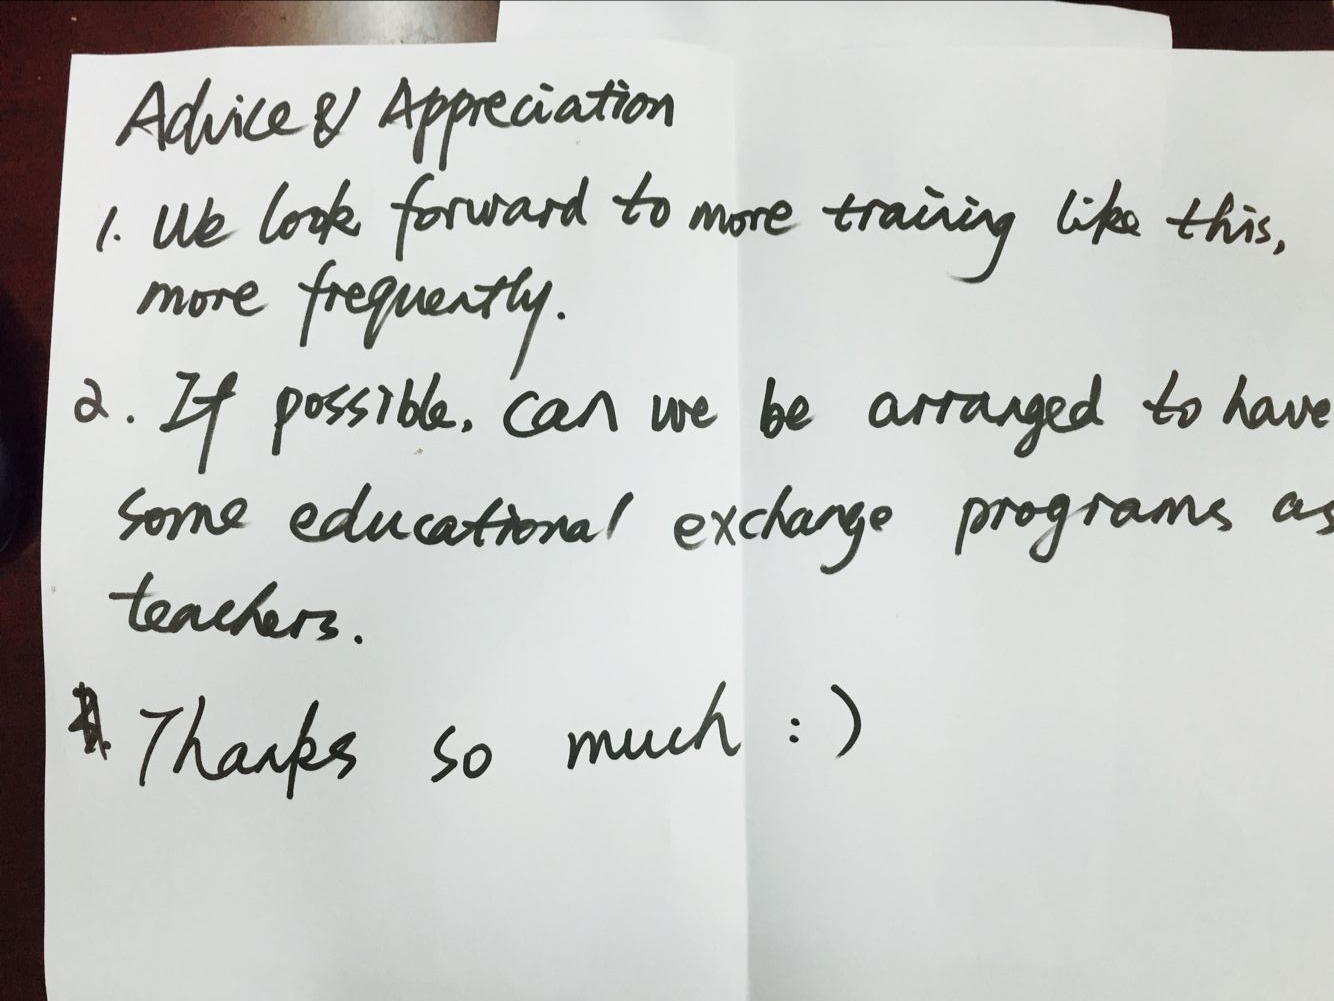 Advice & Appreciation
1. We look forward to more training like this,
more frequently.
2. If possible, can we be arranged to have
some educational exchange programs as
teachers.
Thanks so much :)